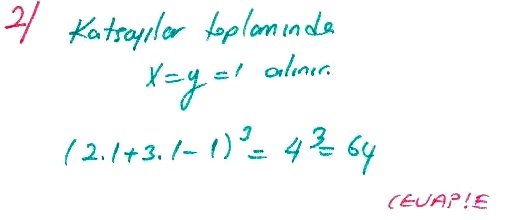 2/ Katsayılar toplamında
x=y=1 alınır.
(2.1+3.1-1)³= 4³= 64
CEVAP!E